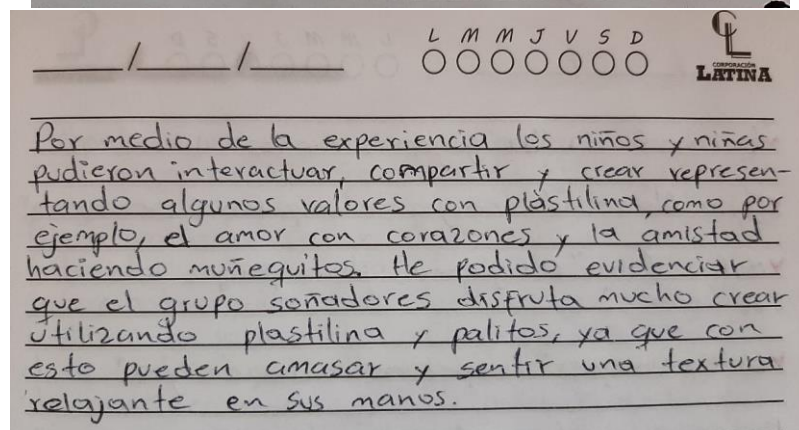 L M M J V S D
CORPORACIÓN
LATINA
Por medio de la experiencia los niños y niñas
pudieron interactuar, compartir y crear represen-
tando algunos valores con plástilina, como por
ejemplo, el amor con corazones y la amistad
haciendo muñequitos. He podido evidenciar
que el grupo soñadores disfruta mucho crear
utilizando plastilina y palitos, ya que con
esto pueden amasar y sentir una textura
relajante en sus manos.